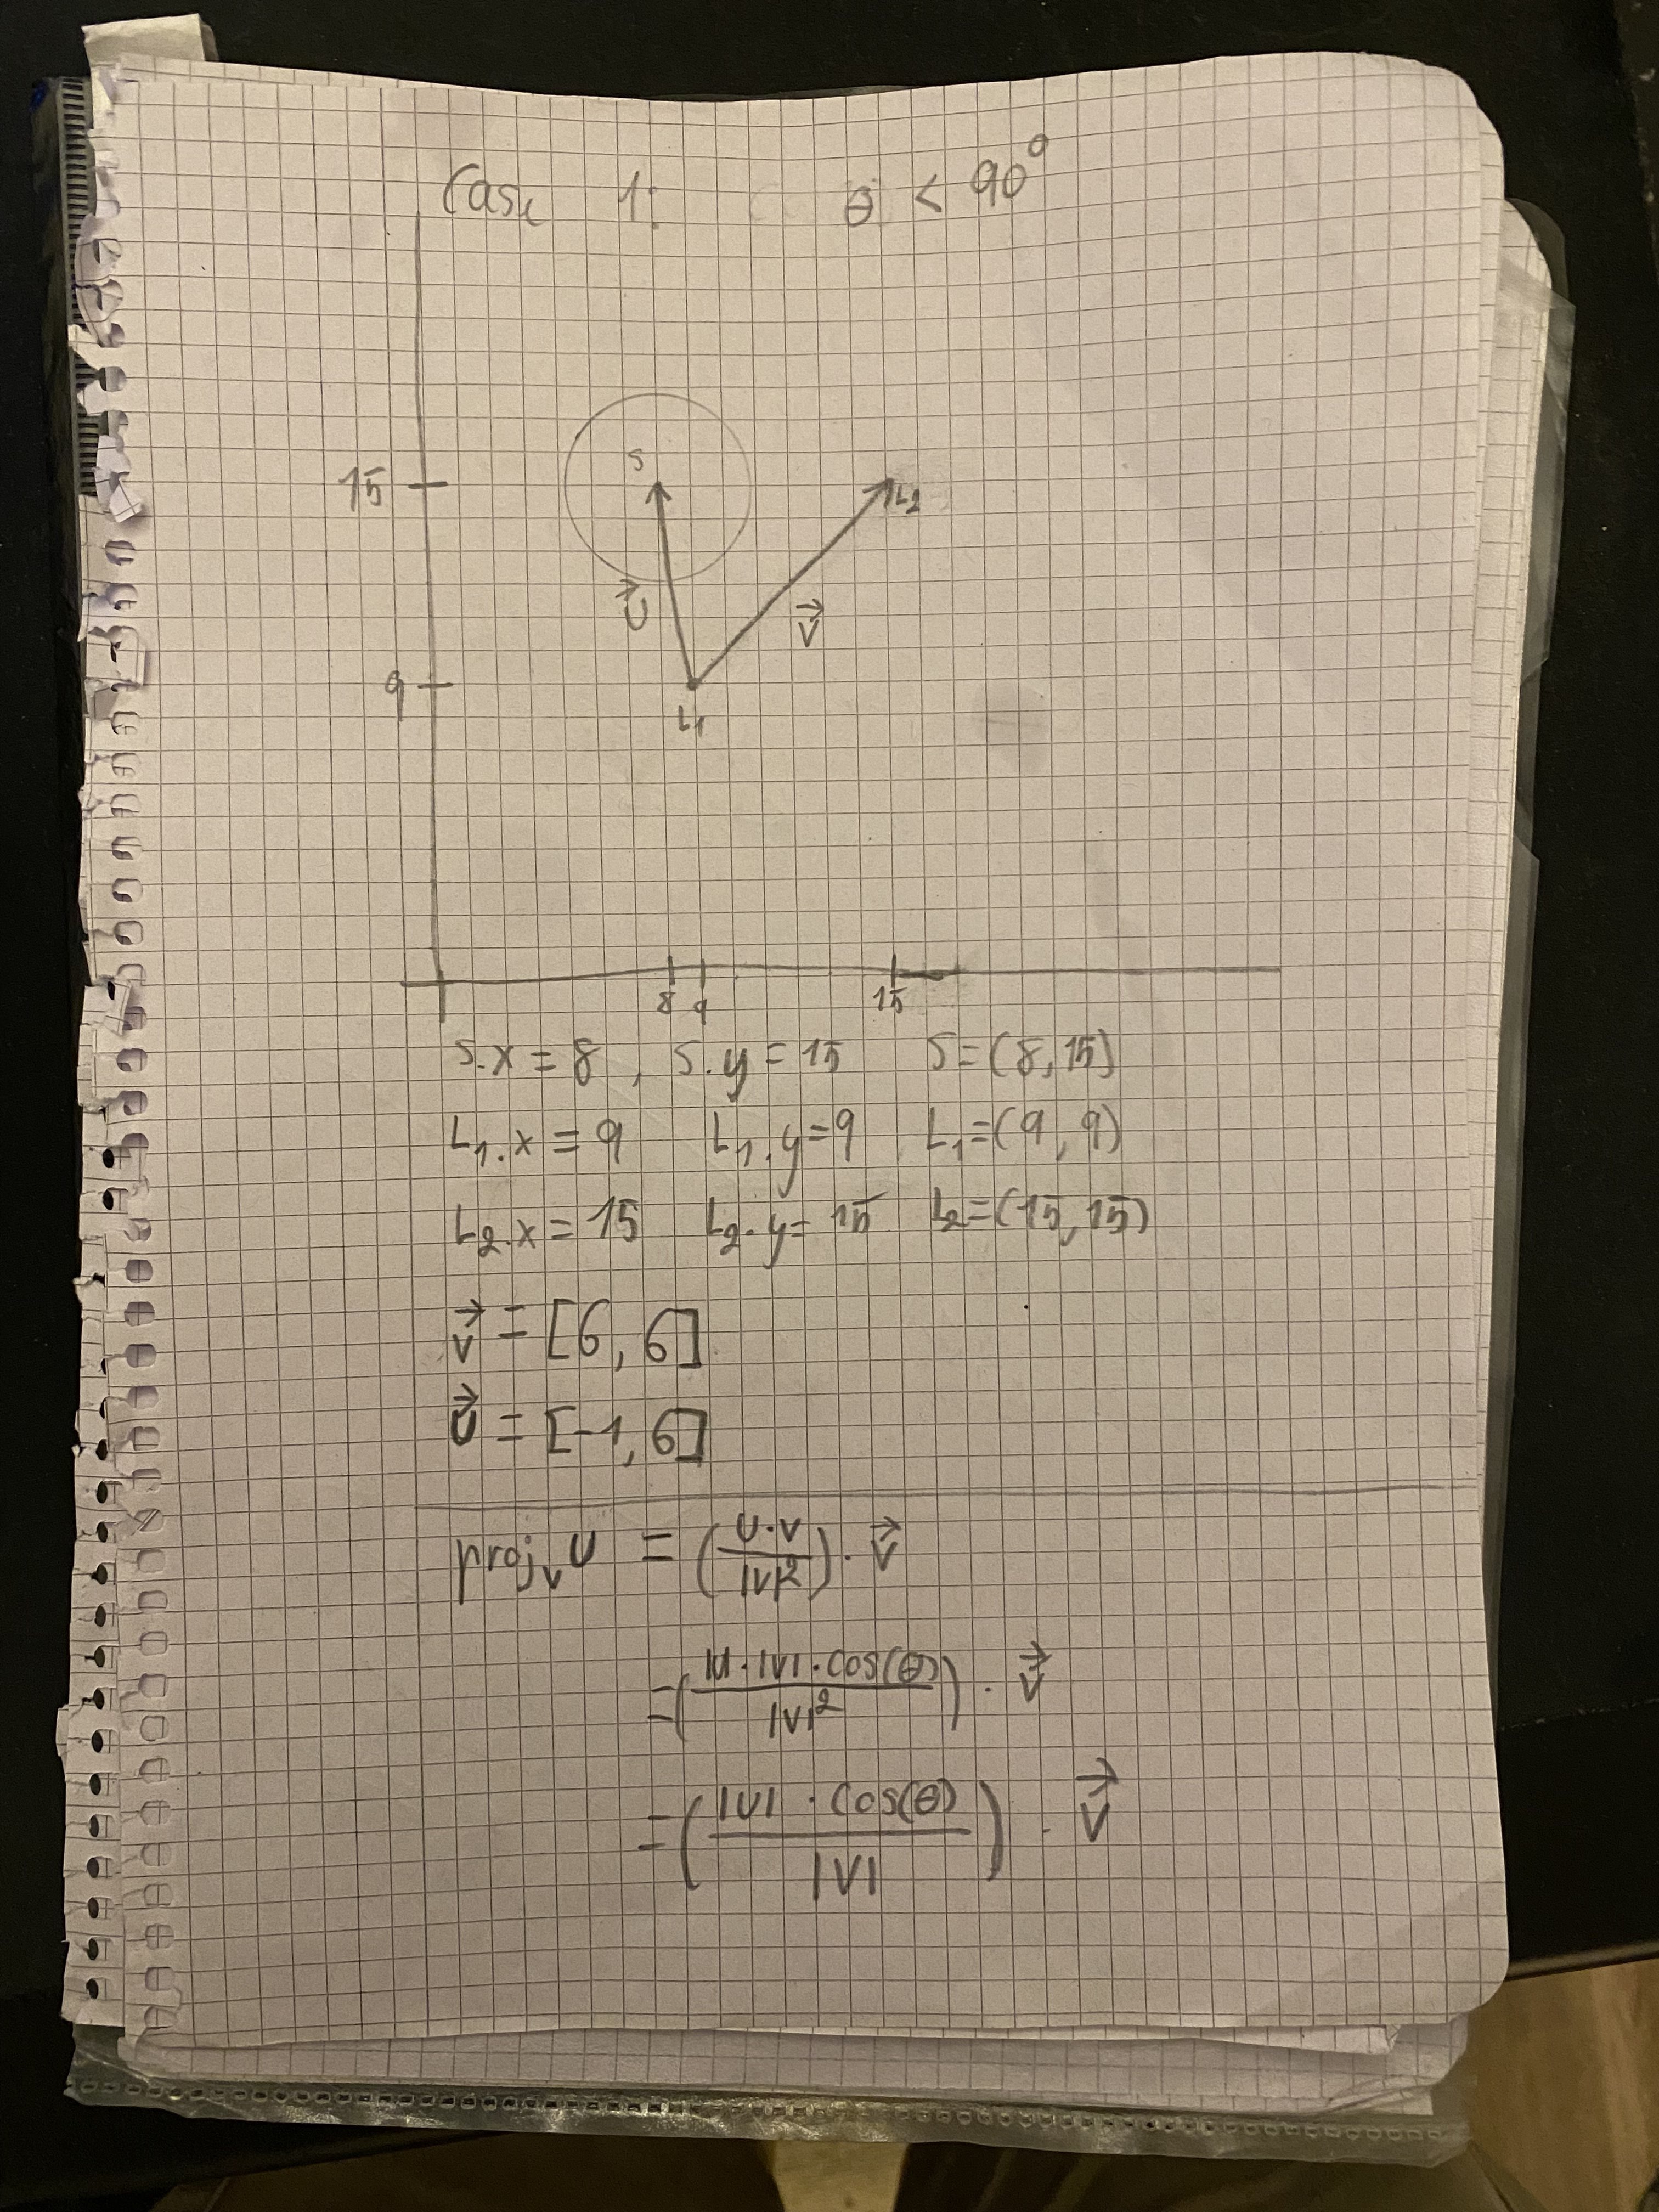 Case 1: θ < 90°
S
15
L₂
U⃗
V⃗
9
L₁
8 9 15
S.x = 8 , S.y = 15 S=(8,15)
L₁.x = 9 L₁.y=9 L₁=(9,9)
L₂.x = 15 L₂.y= 15 L₂=(15,15)
V⃗ = [6, 6]
U⃗ = [-1, 6]
projᵥU = (U·V / |V|²) · V⃗
= (|U|·|V|·cos(θ) / |V|²) · V⃗
= (|U| · cos(θ) / |V|) · V⃗